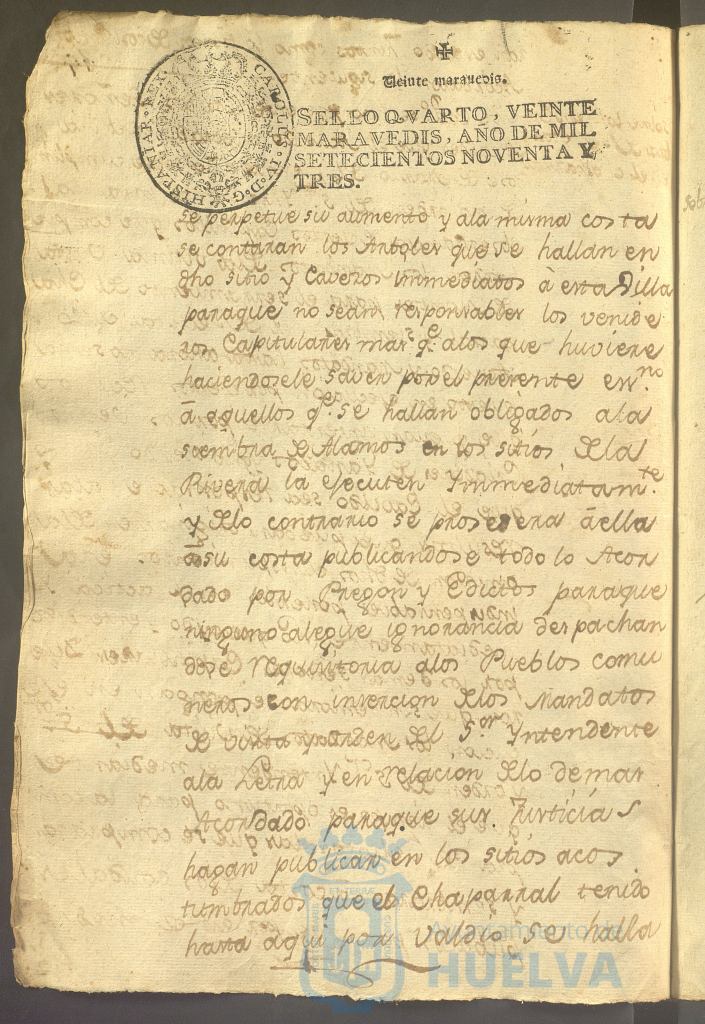 HISPANIAR·REX· CAROLUS·IV·D·G·
Veinte maravedis.
SELLO QVARTO, VEINTE
MARAVEDIS, AÑO DE MIL
SETECIENTOS NOVENTA Y
TRES.
se perpetue su aumento y ala misma costa
se contaran los Arboles que se hallan en
dho sitio y Caveros Immediatos à esta Villa
paraque no sean responsables los venide
ros Capitulares mas qe. alos que huviere
haciendosele saver por el presente essno
à aquellos qe. se hallan obligados ala
siembra de Alamos en los sitios dela
Rivera la ejecuten Ymmediatamte.
y delo contrario se prosedera àella
àsu costa publicandose todo lo Acor
dado por Pregon y Edictos paraque
ninguno alegue ignorancia despachan
dose requisitoria alos Pueblos comu
neros con insercion delos Mandatos
de visita y orden del Sor. Yntendente
ala Letra y en relacion delo demas
Acordado paraque sus Justicias
hagan publicar en los sitios acos
tumbrados que el Chaparral tenido
hasta aqui por valdio se halla
Ayuntamiento de
HUELVA